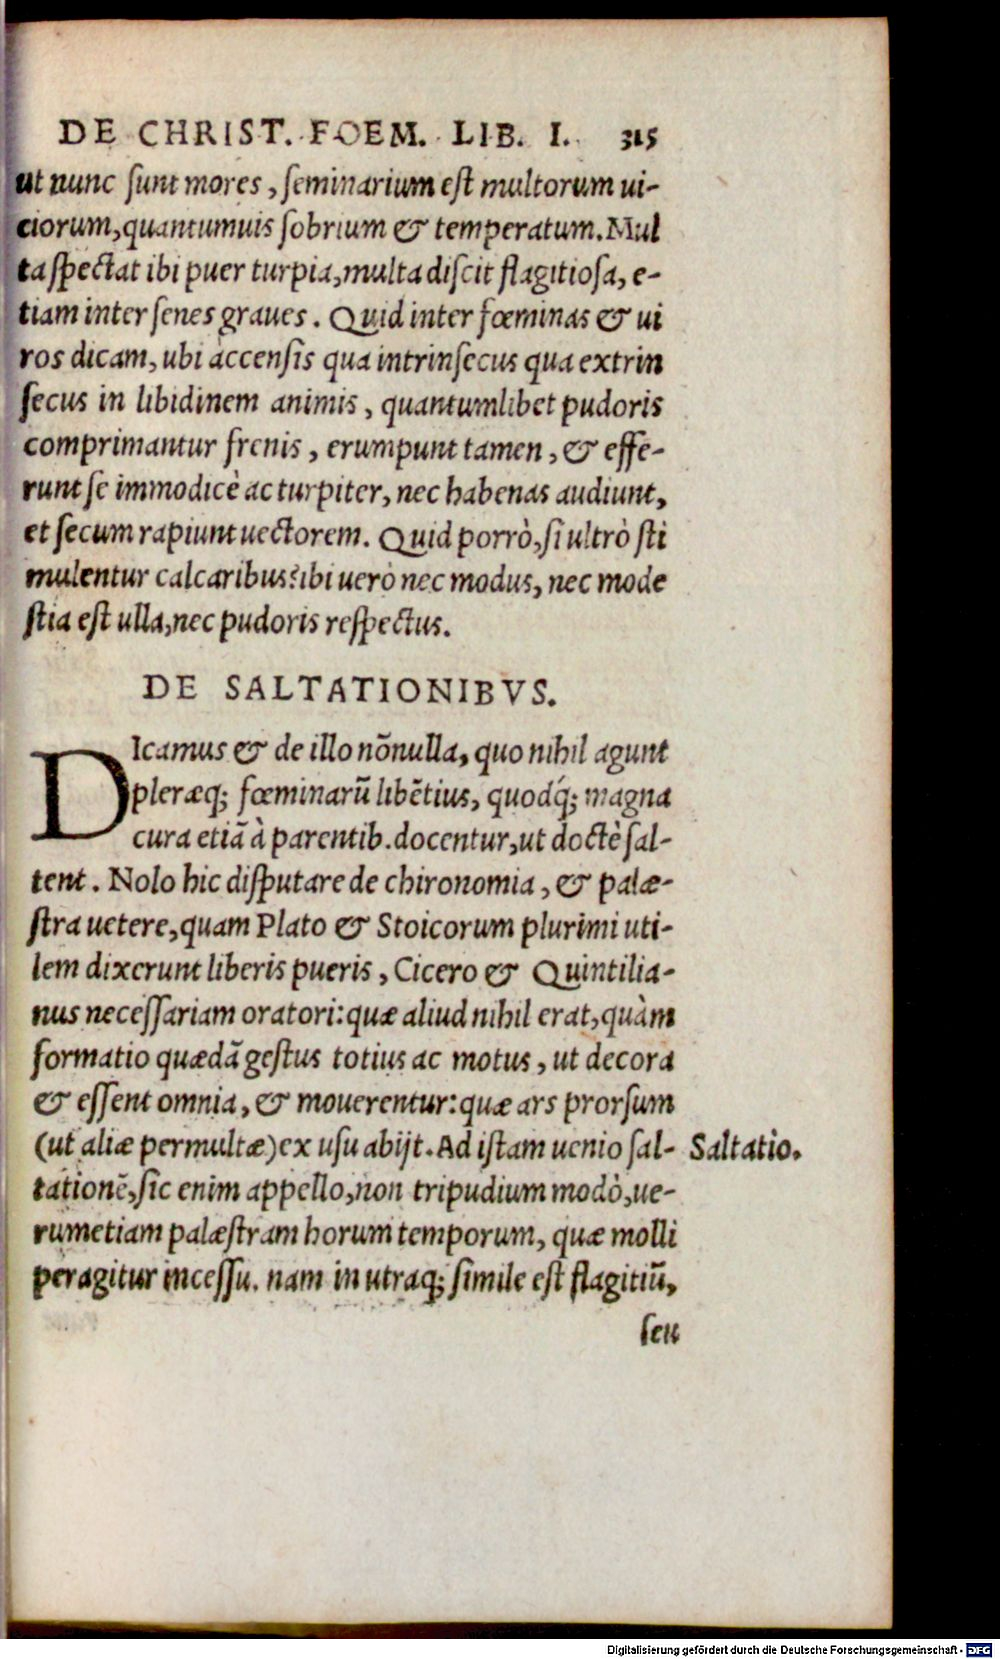 DE CHRIST. FOEM. LIB. I. 315
ut nunc ſunt mores, ſeminarium eſt multorum ui-
ciorum, quantumuis ſobrium & temperatum. Mul
ta ſpectat ibi puer turpia, multa diſcit flagitioſa, e-
tiam inter ſenes graues. Quid inter fœminas & ui
ros dicam, ubi accenſis qua intrinſecus qua extrin
ſecus in libidinem animis, quantumlibet pudoris
comprimantur frenis, erumpunt tamen, & effe-
runt ſe immodicè ac turpiter, nec habenas audiunt,
et ſecum rapiunt uectorem. Quid porrò, ſi ultrò ſti
mulentur calcaribus? ibi uerò nec modus, nec mode
ſtia eſt ulla, nec pudoris reſpectus.
DE SALTATIONIBVS.
DIcamus & de illo nõnulla, quo nihil agunt
pleræq; fœminarũ libẽtius, quodq́; magna
cura etiã à parentib. docentur, ut doctè ſal-
tent. Nolo hic diſputare de chironomia, & palæ-
ſtra uetere, quam Plato & Stoicorum plurimi uti-
lem dixerunt liberis pueris, Cicero & Quintilia-
nus neceſſariam oratori: quæ aliud nihil erat, quàm
formatio quædã geſtus totius ac motus, ut decora
& eſſent omnia, & mouerentur: quæ ars prorſum
(ut aliæ permultæ) ex uſu abijt. Ad iſtam uenio ſal- Saltatio.
tationẽ, ſic enim appello, non tripudium modò, ue-
rumetiam palæſtram horum temporum, quæ molli
peragitur inceſſu. nam in utraq; ſimile eſt flagitiũ,
ſeu
Digitalisierung gefördert durch die Deutsche Forschungsgemeinschaft - DFG